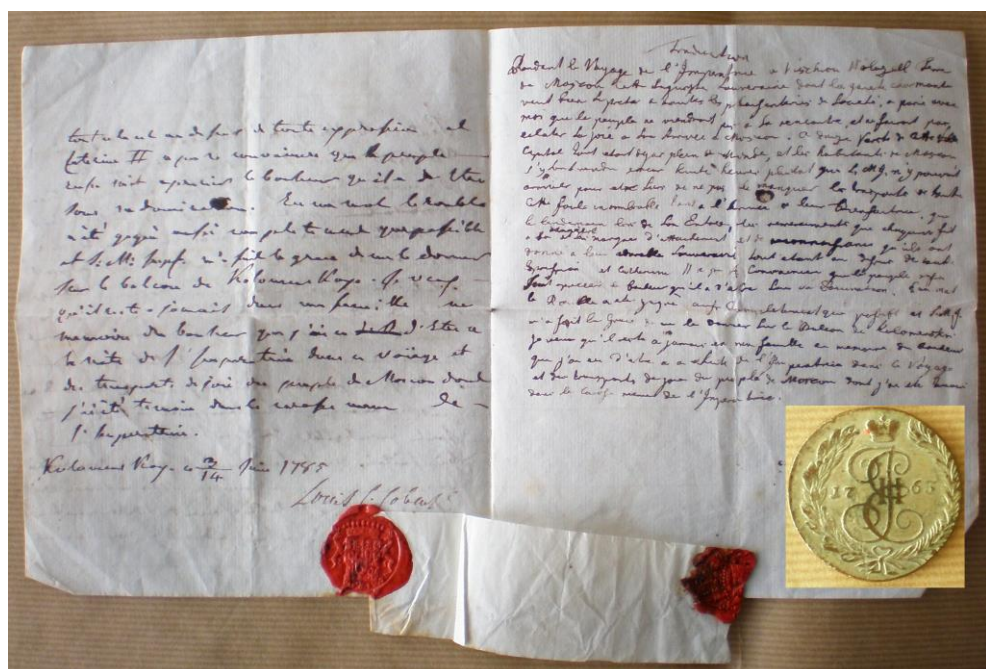 tout cela est au dessus de toute expression et
Caterine II a pu se convaincre que le peuple
russe sait apprecier le bonheur qu'il a de
sous sa domination. En un mot le rouble
a été gagné aussi completement que possible
et S. M. m'a fait la grace de me le donner
sur le balcon de Kolomens Koye. Je veux
qu'il reste a jamais dans ma famille en
memoire du bonheur que j'ai eu d'Etre a
la suite de l'Imperatrice dans ce voiage et
des transports de joie du peuple de Moscou dont
j'ai été temoin dans le carosse meme de
l'Imperatrice.
Kolomens Koy. ce 14 Juin 1785
Louis C.
Traduction
Pendant le Voyage de l'Imperatrice a
de Moscou Cette Souveraine dont la
veut bien se preter a toutes les de Societé, a parié avec
moi que le peuple ne viendroit pas a sa rencontre, et ne feroit pas
eclater sa joie a son arrivée a Moscou. A douze de cette
Capitale tout etoit deja plein de monde, et les habitants de Moscou
s'y heures plutot que S. M. n'y pouvoit
arriver pour etre surs de ne pas la manquer les transports de toute
cette foule innombrable a leur Bienfaitrice, que
le lendemain lors de son Entrée, les que chacun fit
a sa maniere marques d'attachement et de qu'ils ont
donné a leur Souveraine tout etant au dessus de toute
Expression et Catherine II a pu se Convaincre que le peuple
Sait apprecier le Bonheur qu'il a d'etre sous sa Domination. En un mot
le Rouble a eté gagné aussi Completement que possible et
m'a fait la Grace de me le donner sur le Balcon de
je veux qu'il reste a jamais en ma famille en memoire du Bonheur
que j'ai eu d'etre a la suite de l'Imperatrice dans le Voyage
et des transports de joye du peuple de Moscou dont j'ai eté temoin
dans le Carosse meme de l'Imperatrice.
17 63